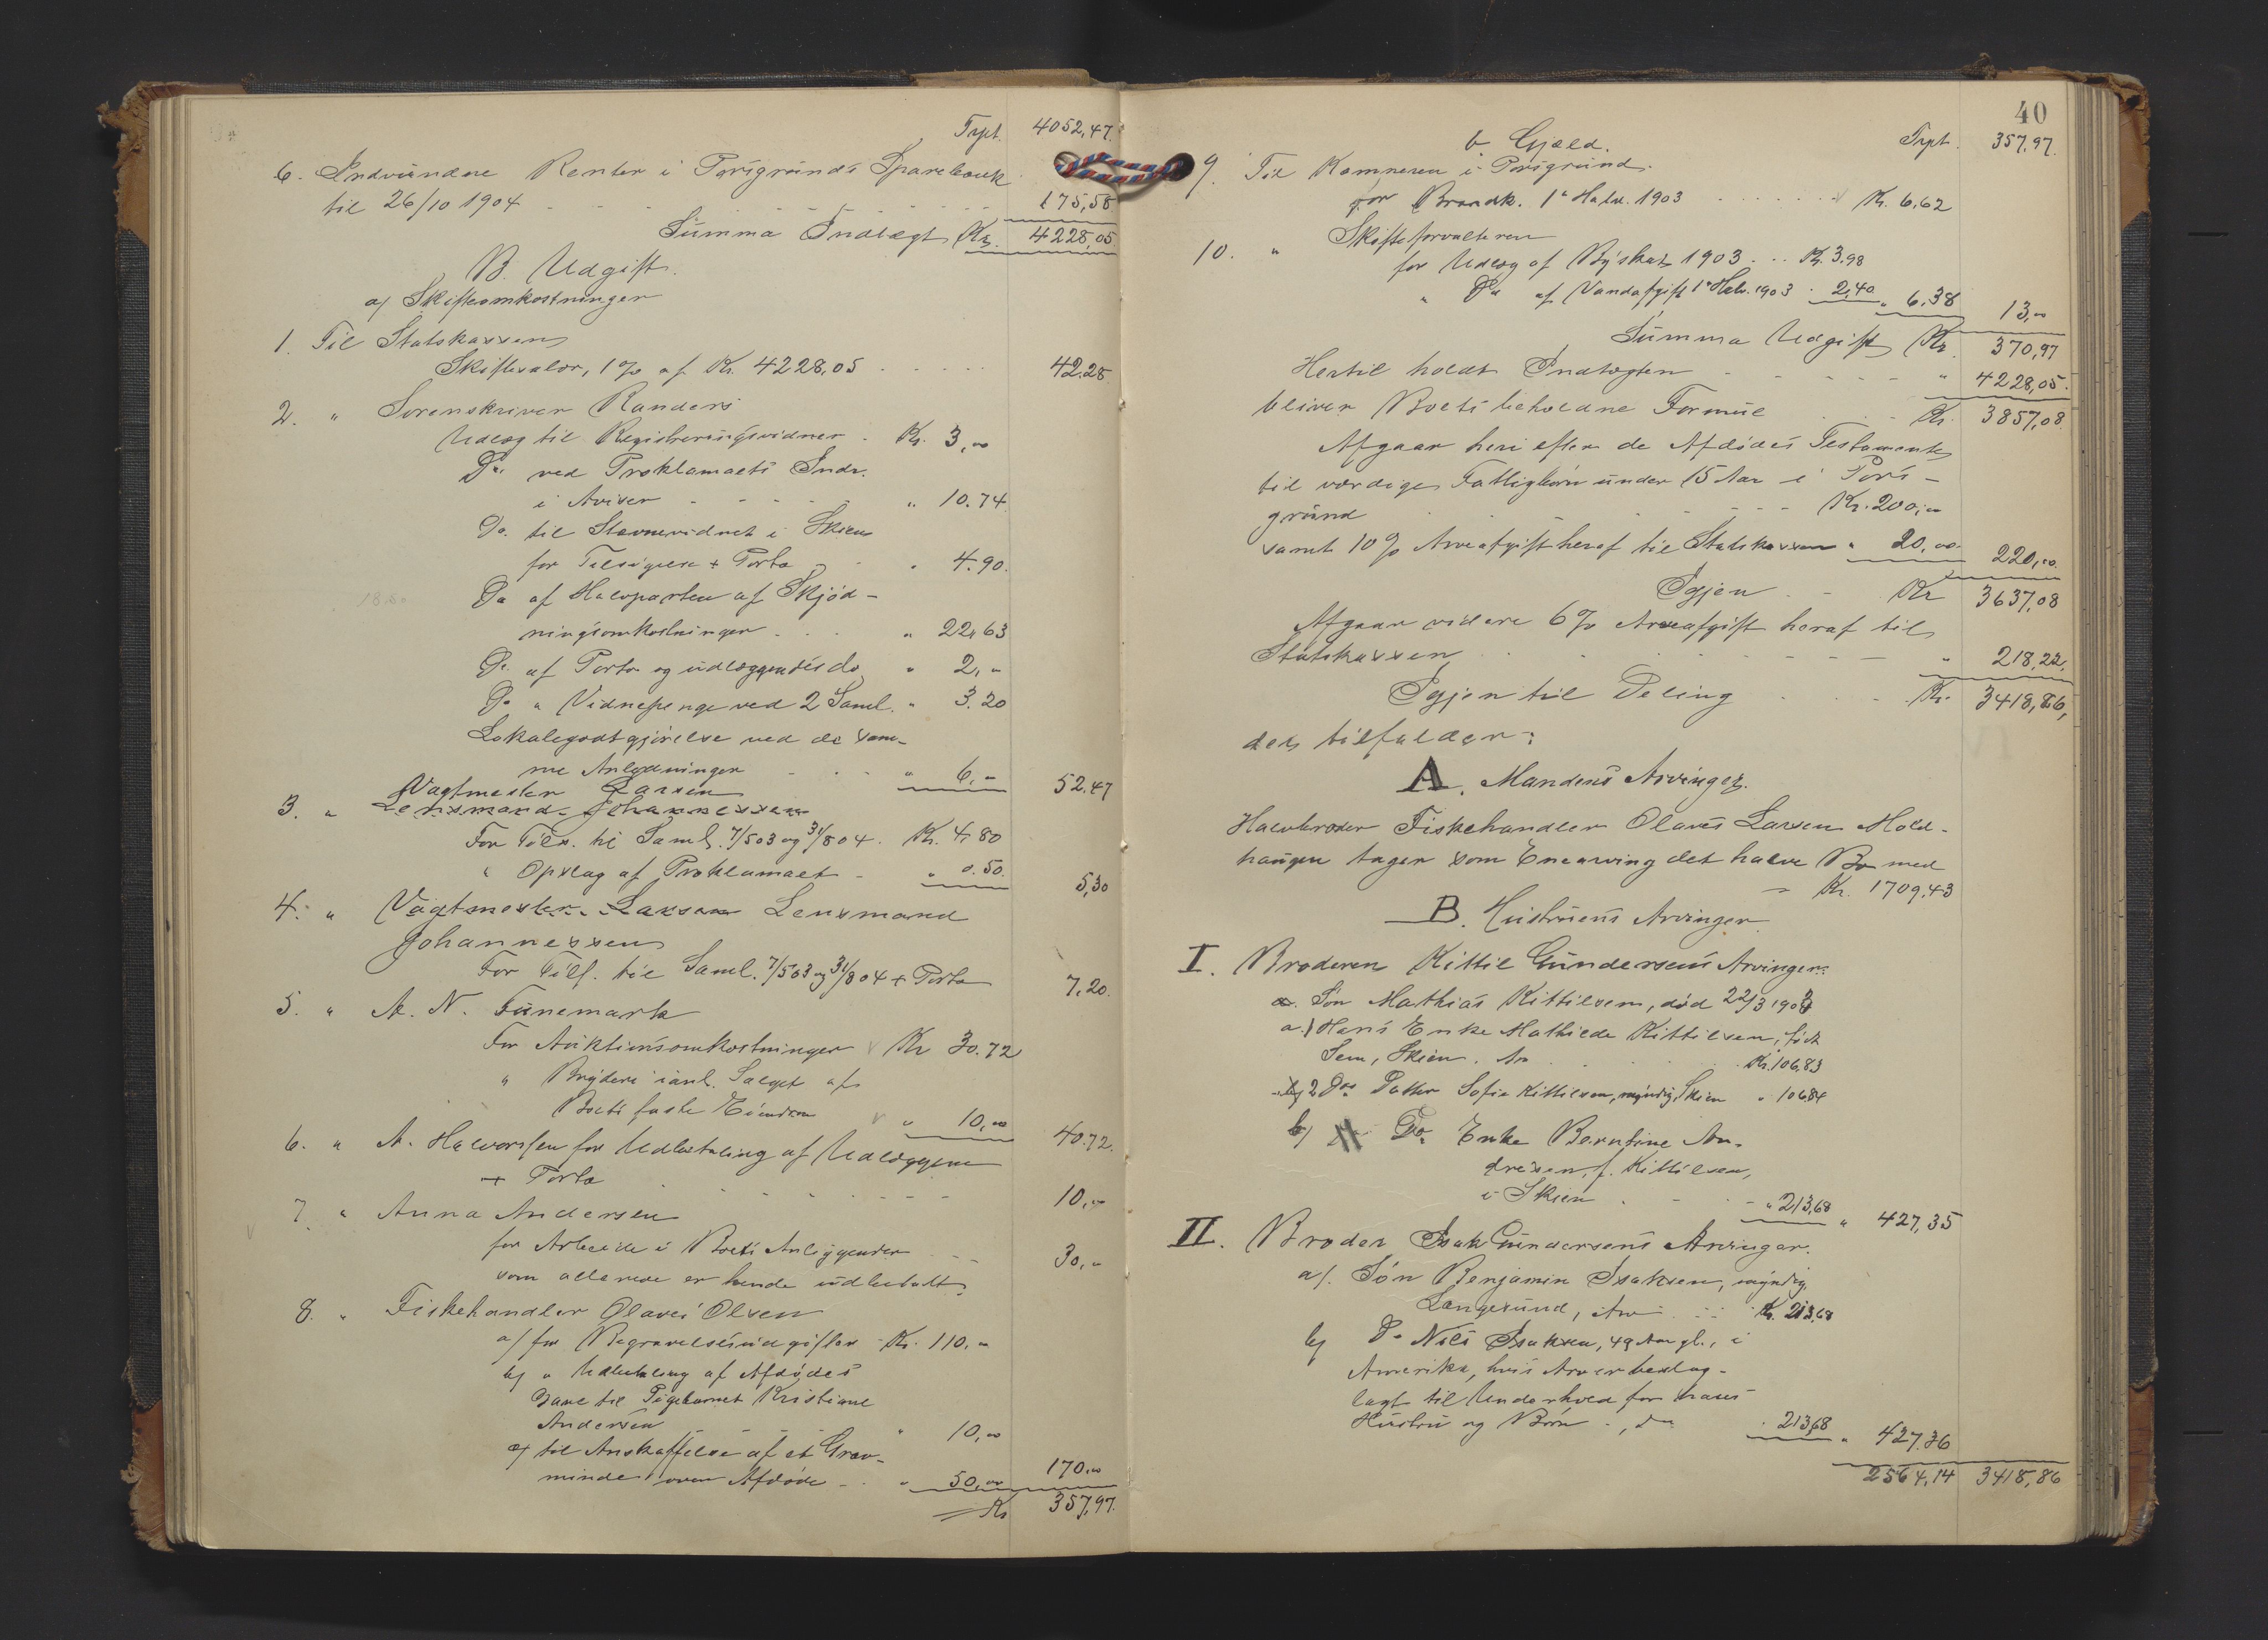 Trpt. 4052,47.
6. Indvundne Renter i Porsgrunds Sparebank
til 26/10 1904 - - - - - 175,58
Summa Indtægt Kr. 4228,05
B. Udgift.
a/ Skifteomkostninger
1. Til Statskassen
Skiftesalær, 1 % af Kr. 4228,05 . . . . . 42.28.
2. " Sorenskriver Randers
Udlæg til Registreringsvidner . Kr. 3,00
Do. ved Proklamaets Indr.
i Aviser - - - - " 10.74.
Do. til Stævnevidnet i Skien
for Tilsigelse + Porto - " 4.90.
Do af Halvparten af Skjød-
ningsomkostninger . . . " 22,63
Do. af Porto og udlæggendes do " 2,"
Do " Vidnepenge ved 2 Saml. " 3.20
Lokalegodtgjørelse ved de sam-
me Anledninger - . . " 6.- 52.47
Vagtmester Larsen
3. " Lensmand Johannessen
For Tils. til Saml. 7/5 03 og 31/8 04. Kr. 4,80
" Opslag af Proklamaet - " 0.50. 5,30
4. " Vagtmester Larsen Lensmand
Johannessen
For Tils. til Saml. 7/5 03 og 31/8 04 + Porto 7,20.
5. " A. N. Funnemark
For Auktionsomkostninger Kr 30.72
" Bryderi i anl. Salget af
Boets faste Eiendom " 10,00 40.72.
6. " A. Halvorsen for Udbetaling af Udlæggene
+ Porto - - - - - - - 10,00
7. " Anna Andersen
for Arbeide i Boets Anliggender - - 30,"
som allerede er hende udbetalt.
8. " Fiskehandler Olaves Olsen
a/ for Begravelsesudgifter - Kr. 110,"
b/ " Udbetaling af Afdødes
Gave til Pigebarnet Kristiane
Andersen " 10,00
c/ til Anskaffelse af et Grav-
minde over Afdøde - . " 50,00 170.00
Kr 357,97.
40
b Gjæld. Trpt. 357,97.
9. Til Kæmneren i Porsgrund.
for Brandk. 1ste Halv. 1903 . . . . . . Kr. 6,62
10. " Skifteforvalteren
for Udlæg af Byskat 1903 . . . Kr. 3.98
" Do af Vandafgift 1ste Halv. 1903 . 2,40 " 6,38 13,00
Summa Udgift Kr. 370,97
Hertil holdt Indtægten - - - - - " 4228,05.
bliver Boets beholdne Formue . . - Kr. 3857,08.
Afgaar heri efter de Afdødes Testamente
til værdige Fattigbørn under 15 Aar i Pors-
grund - - - - Kr. 200,00
samt 10 % Arveafgift heraf til Statskassen " 20,00 220,00.
Igjen . - Kr 3637,08
Afgaar videre 6 % Arveafgift heraf til
Statskassen - - - - - " 218,22,
Igjen til Deling . . - Kr. 3418,86,
der tilfalder:
A. Mandens Arvinger.
Halvbroder Fiskehandler Olaves Larsen Mold-
haugen tager som Enearving det halve Bo med
Kr. 1709.43
B. Hustruens Arvinger
I. Broderen Kittil Gundersens Arvinger:
a. Søn Mathias Kittilsen, død 22/3 1904
a. 1 Hans Enke Mathilde Kittilsen, født
Sem, Skien . Arv . . . Kr. 106,83
b/ 2 Dos Datter Sofie Kittilsen, myndig, Skien " 106,84
b/ Do. Enke Berntine An-
dresen, f. Kittilsen,
i Skien . - . - " 213,68 " 427,35
II. Broder Isak Gundersens Arvinger.
a/. Søn Benjamin Isaksen, myndig,
Langesund, Arv - . . . Kr. 213,68
b/ Do Nils Isaksen, 49 Aar gl., i
Amerika, hvis Arv er beslag-
lagt til Underhold for hans
Hustru og Børn ., do . 213,68 " 427.36
2564,14 3418,86